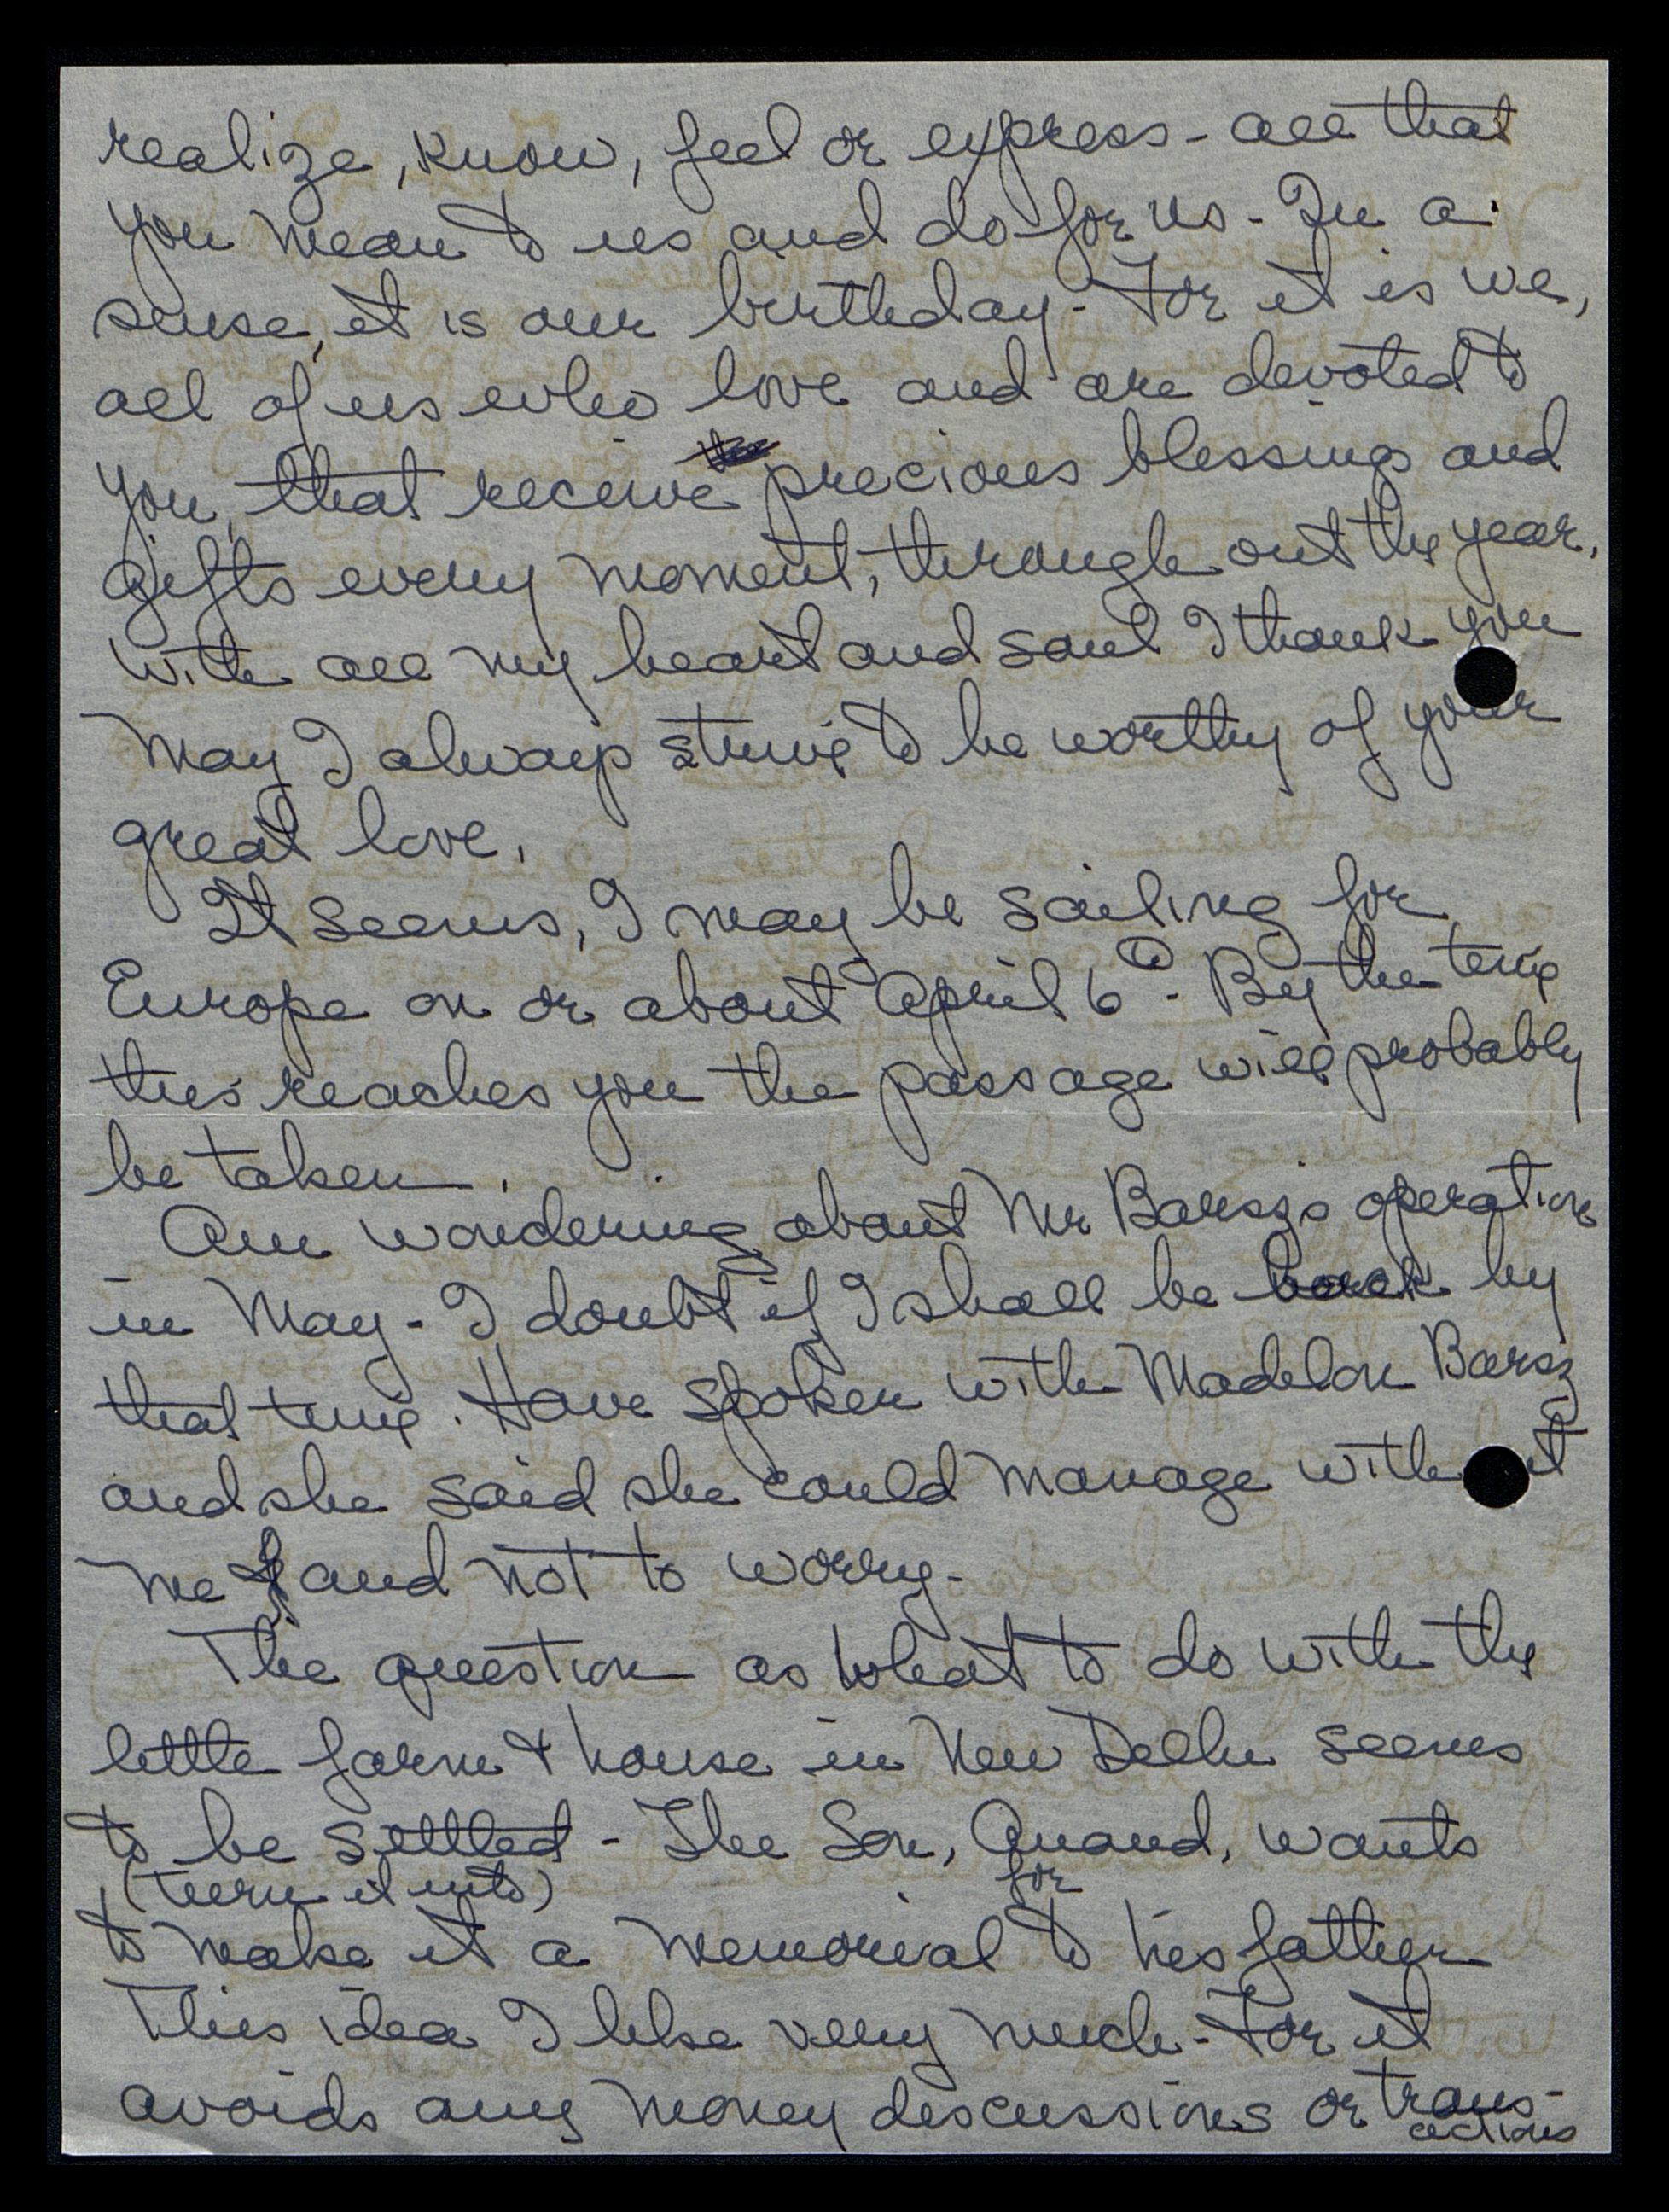 realize, know, feel or express - all that
you mean to us and do for us - In a
sense, it is our birthday - For it is we,
all of us who love and are devoted to
you, that receive precious blessings and
gifts every moment, through out the year.
With all my heart and soul I thank you
May I always strive to be worthy of your
great love.
It seems, I may be sailing for
Europe on or about April 6th - By the time
this reaches you the passage will probably
be taken.
Am wondering about Mr Barsz's operation
in May - I doubt if I shall be back by
that time. Have spoken with Madelon Barsz
and she said she could manage without
me and not to worry -
The question as what to do with the
little farm & house in New Delhi seems
to be settled - The Son, Anand, wants
(turn it into) for
to make it a memorial to his father
This idea I like very much - For it
avoids any money discussions or trans-
actions